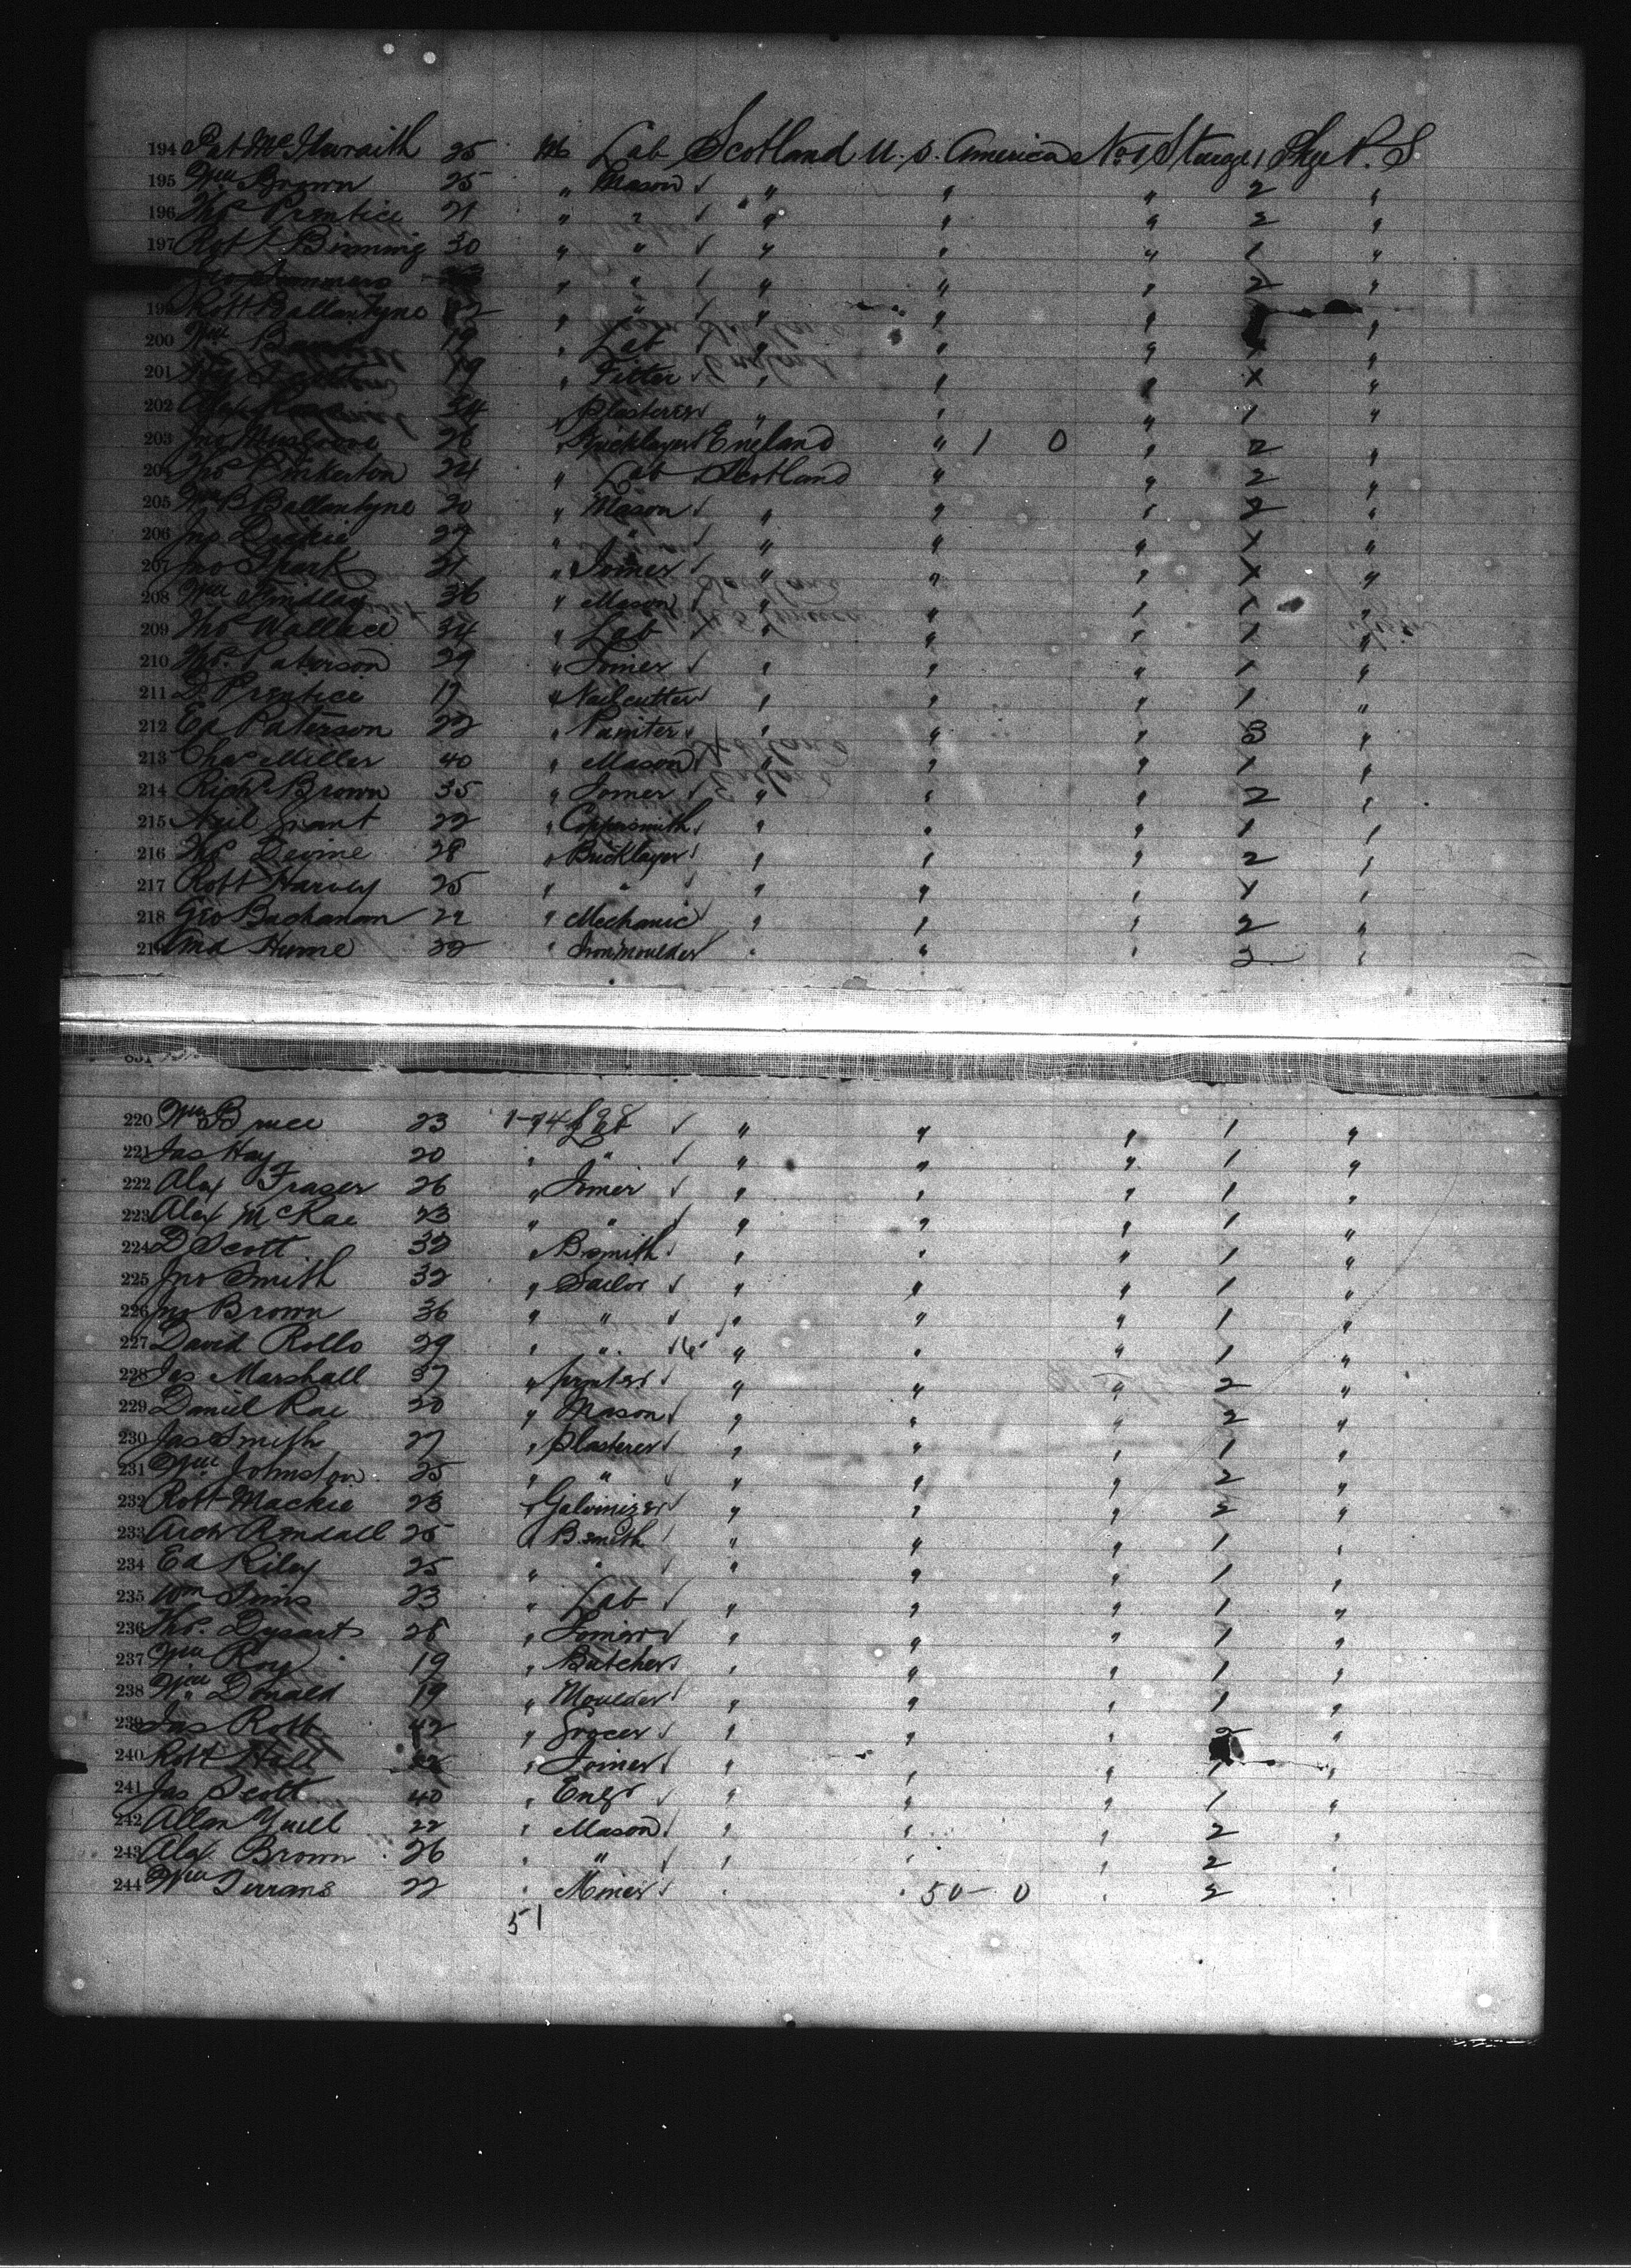 194 Pat McIlwraith 25 M Lab Scotland U.S. America No 1 Steerage 1 P.S
195 Wm Brown 25 " Mason " " " 2 "
196 Tho Prentice 21 " " " " " 2 "
197 Robt Binning 30 " " " " " 1 "
Geo Simmers " " " " " 2 "
199 Robt Ballantyne " " " " "
200 Wm 19 " Lab " " " "
201 19 " Fitter " " " "
202 Alex 34 " Plasterer " " " 1 "
203 Jno Musgrove 26 " Bricklayer England " 1 0 " 2 "
204 Tho Pinkerton 24 " Lab Scotland " " 2 "
205 Wm B Ballantyne 20 " Mason " " " 2 "
206 Jno Dickie 27 " " " " " 1 "
207 Jno Spark 21 " Joiner " " " 1 "
208 Wm Findlay 36 " Mason " " " 1 "
209 Tho Wallace 34 " Lab " " " 1 "
210 Tho. Paterson 29 " Joiner " " " 1 "
211 D Prentice 19 " Nailcutter " " " 1 "
212 Ed Paterson 22 " Painter " " " 3 "
213 Chas Miller 40 " Mason " " " 1 "
214 Richd Brown 35 " Joiner " " " 2 "
215 Neil Grant 22 " Coppersmith " " " 1 "
216 Devine 28 " Bricklayer " " " 2 "
217 Robt Harvey 25 " " " " " 1 "
218 Geo Buchanan 22 " Mechanic " " " 2 "
219 And Hume 22 " Ironmoulder " " " 2 "
220 Wm Bruce 23 Lab " " " 1 "
221 Jas Hay 20 " " " " " 1 "
222 Alex Fraser 26 " Joiner " " " 1 "
223 Alex McRae 23 " " " " " 1 "
224 D Scott 32 " B.smith " " " 1 "
225 Jno Smith 32 " Sailor " " " 1 "
226 Jno Brown 36 " " " " " 1 "
227 David Rollo 29 " " " " " 1 "
228 Jas Marshall 37 " printer " " " 2 "
229 Daniel Rae 20 " Mason " " " 2 "
230 Jas Smith 27 " Plasterer " " " 1 "
231 Wm Johnston 25 " " " " " 2 "
232 Robt Mackie 23 " Galvinizer " " " 2 "
233 Arch 25 " B.smith " " " 1 "
234 Ed Riley 25 " " " " " 1 "
235 Wm Sims 23 " Lab " " " 1 "
236 Tho. Dysart 28 " Joiner " " " 1 "
237 Wm Roy 19 " Butcher " " " 1 "
238 Wm Donald 19 " Moulder " " " 1 "
239 Jas Robb 42 " Grocer " " " 2 "
240 Robt Hall " Joiner " " " "
241 Jas Scott 40 " Engr " " " 1 "
242 Allan Yuill 22 " Mason " " " 2 "
243 Alex Brown 26 " " " " " 2 "
244 Wm 22 " Miner " " 50-0 " 2 "
51